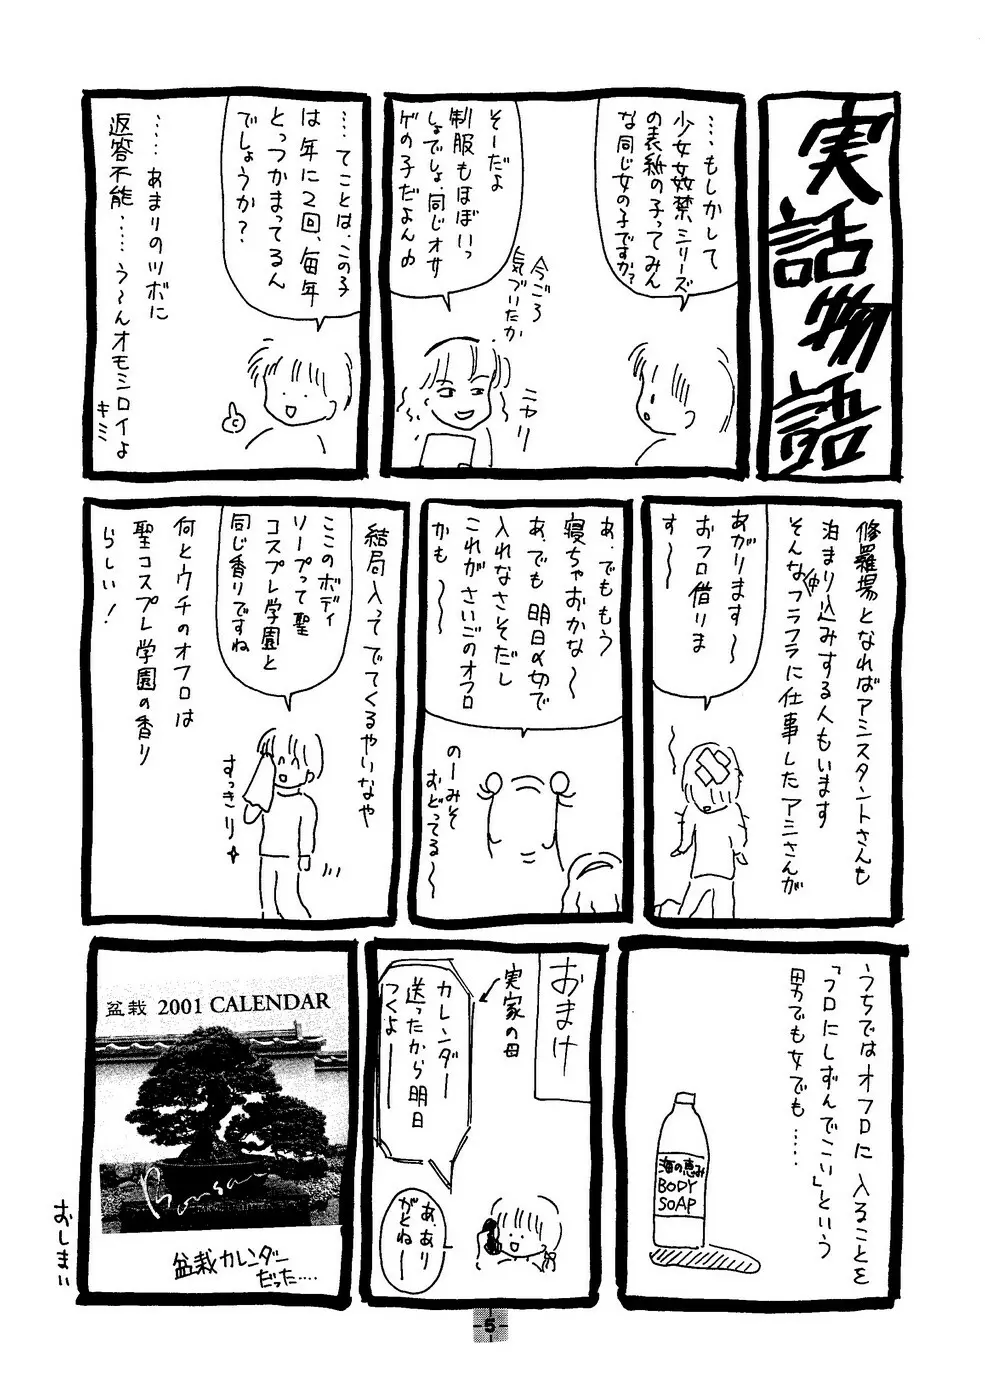 実話物語
‥‥もしかして
少女姦禁シリーズ
の表紙の子ってみん
な同じ女の子ですか?
そーだよ
制服もほぼいっ
しょでしょ、同じオサ
ゲの子だよん♪
今ごろ
気づいたか
ニヤリ
‥‥てことは、この子
は年に2回、毎年
とっつかまってるん
でしょうか?
‥‥あまりのツボに
返答不能‥‥う〜んオモシロイよ
キミ
修羅場となればアシスタントさんも
泊まり込みする人もいます
そんな中フラフラに仕事したアシさんが
あがります〜
おフロ借りま
す〜
あ、でももう
寝ちゃおかな〜
あ、でも明日〆切で
入れなさそだし
これがさいごのオフロ
かも〜
のーみそ
おどってる〜
結局入ってでてくるやいなや
ここのボディ
ソープって聖
コスプレ学園と
同じ香りですね
すっきり
何とウチのオフロは
聖コスプレ学園の香り
らしい!
うちではオフロに入ることを
「フロにしずんでこい」という
男でも女でも‥‥
海の恵み
BODY
SOAP
おまけ
実家の母
カレンダー
送ったから明日
つくよ――
あ、あり
がとねー
盆栽 2001 CALENDAR
Bonsai
盆栽カレンダー
だった‥‥
おしまい
5